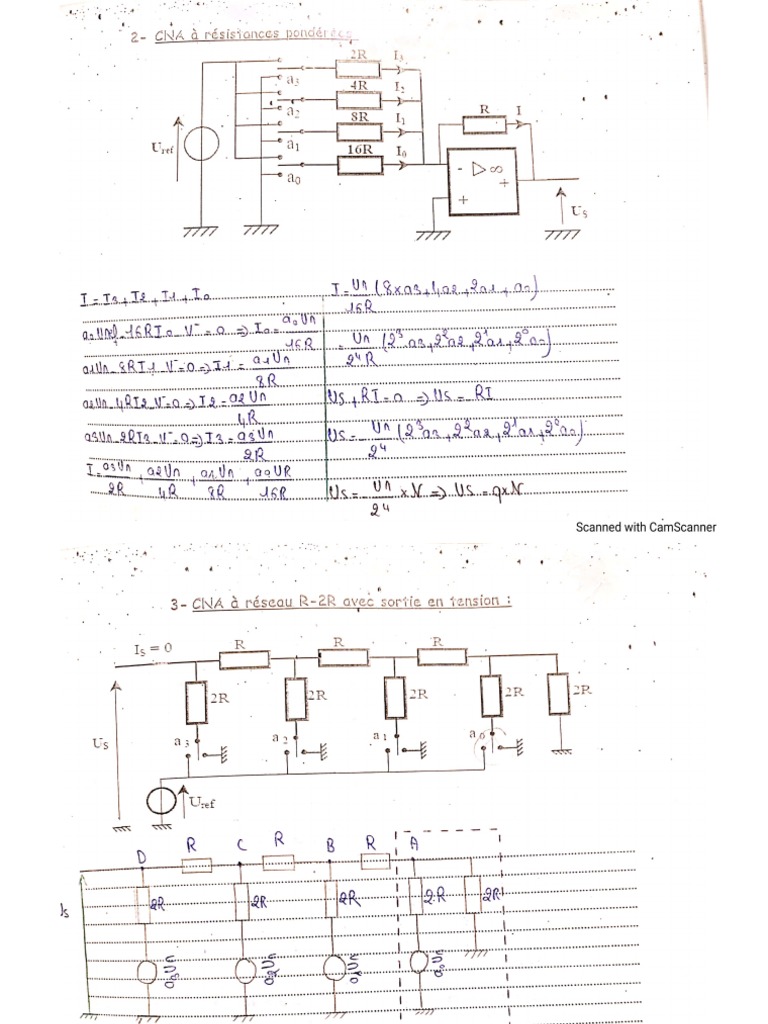 2- CNA à résistances pondérées
2R I3
a3
4R I2
a2
8R I1
a1
16R I0
a0
Uref
R I
- ▷ ∞
+
+
US
I = I3 + I2 + I1 + I0
a0Uref - 16RI0 - V⁻ = 0 => I0 = a0Un/16R
a1Un - 8RI1 - V⁻ = 0 => I1 = a1Un/8R
a2Un - 4RI2 - V⁻ = 0 => I2 = a2Un/4R
a3Un - 2RI3 - V⁻ = 0 => I3 = a3Un/2R
I = a3Un/2R + a2Un/4R + a1Un/8R + a0UR/16R
I = Un/16R (8xa3 + 4a2 + 2a1 + a0)
= Un/2⁴R (2³a3 + 2²a2 + 2¹a1 + 2⁰a0)
Us + RI = 0 => Us = - RI
Us = - Un/2⁴ (2³a3 + 2²a2 + 2¹a1 + 2⁰a0)
Us = - Un/2⁴ x N => Us = qxN
Scanned with CamScanner
3- CNA à réseau R-2R avec sortie en tension :
IS = 0 R R R
2R 2R 2R 2R 2R
US a3 a2 a1 a0
Uref
D R C R B R A
2R 2R 2R 2R 2R
Us
a3Un a2Un a1Un a0Un